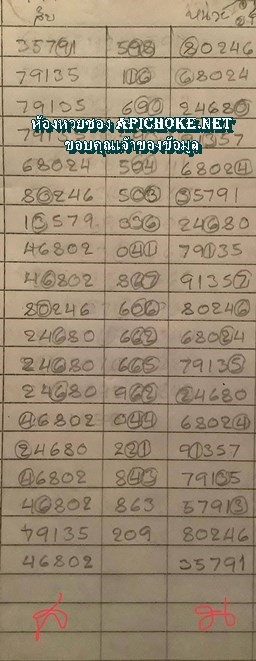 สิบ หน่วย
35791 598 80246
79135 106 68024
79105 690 24680
ห้องหวยซอง APICHOKE.NET
ขอบคุณเจ้าของข้อมูล
68024 504 68024
80246 503 35791
13579 336 24680
46802 041 79135
46802 827 91357
80246 606 80246
24680 662 68024
24680 665 79135
24680 962 24680
46802 044 68024
24680 221 91357
46802 843 79135
46802 863 57913
79135 209 80246
46802 35791
ส น